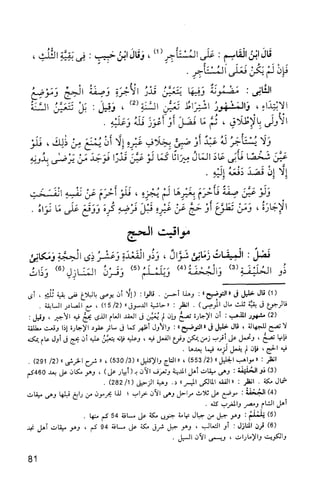 قَالَ ابْنُ الْقَاسِمِ : عَلَى الْمُسْتَأْجِرِ (1) ، وَقَالَ ابْنُ حَبِيبٍ : فِي بَقِيَّةِ الثُّلُثِ ،
فَإِنْ لَمْ يَكُنْ فَعَلَى الْمُسْتَأْجِرِ .
الثَّانِي : مَضْمُونَةٌ وَفِيهَا يَتَعَيَّنُ قَدْرُ الْأُجْرَةِ وَصِفَةُ الْحَجِّ وَمَوْضِعُ
الِابْتِدَاءِ ، وَالْمَشْهُورُ اشْتِرَاطُ تَعَيُّنِ السَّنَةِ (2) ، وَقِيلَ : بَلْ تَتَعَيَّنُ السَّنَةُ
الْأُولَى بِالْإِطْلَاقِ ، ثُمَّ مَا فَضَلَ أَوْ أَعْوَزَ فَلَهُ وَعَلَيْهِ .
وَلَا يُسْتَأْجَرُ لَهُ عَبْدٌ أَوْ صَبِيٌّ بِخِلَافِ غَيْرِهِ إِلَّا أَنْ يُمْنَعَ مِنْ ذَلِكَ ، فَلَوْ
عَيَّنَ شَخْصًا فَأَبَى عَادَ الْمَالُ مِيرَاثًا كَمَا لَوْ عَيَّنَ قَدْرًا فَوُجِدَ مَنْ يَرْضَى بِدُونِهِ
إِلَّا إِنْ قَصَدَ دَفْعَهُ إِلَيْهِ .
وَلَوْ عَيَّنَ صِفَةً فَأَحْرَمَ بِغَيْرِهَا لَمْ يُجْزِهِ ، فَلَوْ أَحْرَمَ عَنْ نَفْسِهِ انْفَسَخَتِ
الْإِجَارَةُ ، وَمَنْ تَطَوَّعَ أَوْ حَجَّ عَنْ غَيْرِهِ قَبْلَ فَرْضِهِ كُرِهَ وَوَقَعَ عَلَى مَا نَوَاهُ .
مواقيت الحج
فَصْلٌ : الْمِيقَاتُ زَمَانِيٌّ شَوَّالٌ ، وَذُو الْقَعْدَةِ وَعَشْرُ ذِي الْحِجَّةِ وَمَكَانِيٌّ
ذُو الْحُلَيْفَةِ (3) وَالْجُحْفَةُ (4) وَيَلَمْلَمُ (5) وَقَرْنُ الْمَنَازِلِ (6) وَذَاتُ
(1) قال خليل في «التوضيح» : وهذا أحسن . قالوا : (إلا أن يوصي بالبلاغ ففي بقية ثلثه ، أي
فالرجوع في بقية ثلث مال الموصي) . انظر : «حاشية الدسوقي» (2/ 15) ، مع المصادر السابقة .
(2) مشهور المذهب : أن الإجارة تصح وإن لم يتعين في العقد العام الذي يحج فيه الأجير ، وقيل :
لا تصح للجهالة ، قال خليل في «التوضيح» : والأول أظهر كما في سائر عقود الإجارة إذا وقعت مطلقة
فإنها تصح ، وتحمل على أقرب زمن يمكن وقوع الفعل فيه ، وعليه فإنه يتعين عليه أن يحج في أول عام يمكنه
فيه الحج ، فإن لم يفعل لزمه فيما بعدها .
انظر : «مواهب الجليل» (2/ 553) ، «التاج والإكليل» (3/ 530) ، «شرح الخرشي» (2/ 291) .
(3) ذو الحليفة : وهي ميقات أهل المدينة وتعرف الآن بـ (أبيار علي) ، وهو مكان على بعد 460كم
شمال مكة . انظر : «الفقه المالكي الميسر» د. وهبة الزحيلي (1/ 282) .
(4) الجحفة : موضع على ثلاث مراحل وهي الآن خراب ؛ لذا يحرمون من رابغ قبلها وهي ميقات
أهل الشام ومصر والمغرب كله .
(5) يلملم : وهو جبل من جبال تهامة جنوب مكة على مسافة 54 كم منها .
(6) قرن المنازل : أو الثعالب ، وهو جبل شرقي مكة على مسافة 94 كم ، وهو ميقات أهل نجد
والكويت والإمارات ، ويسمى الآن السيل .
81